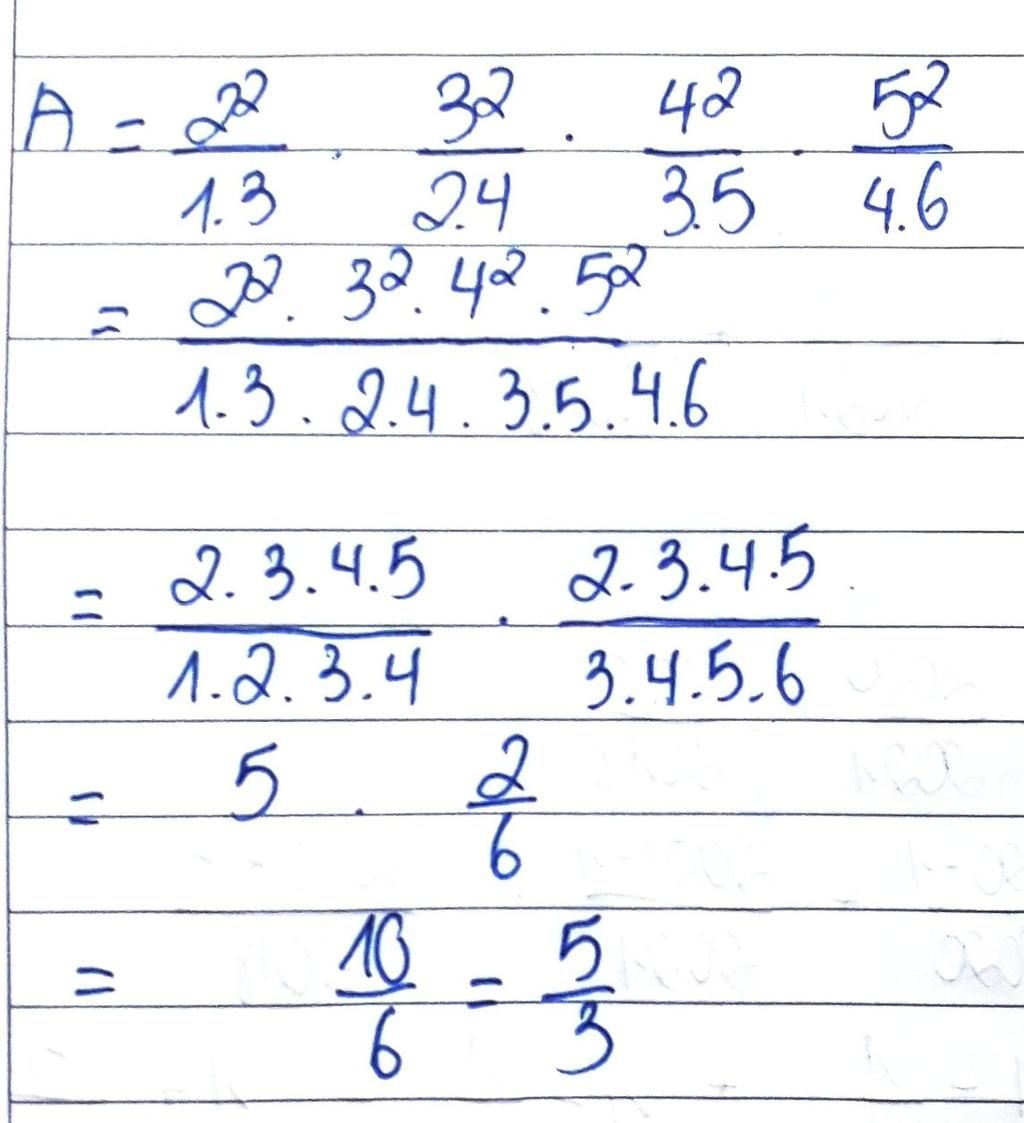 A = 2²/1.3 . 3²/2.4 . 4²/3.5 . 5²/4.6
= 2² . 3² . 4² . 5²/1.3 . 2.4 . 3.5 . 4.6
= 2.3.4.5/1.2.3.4 . 2.3.4.5/3.4.5.6
= 5 . 2/6
= 10/6 = 5/3